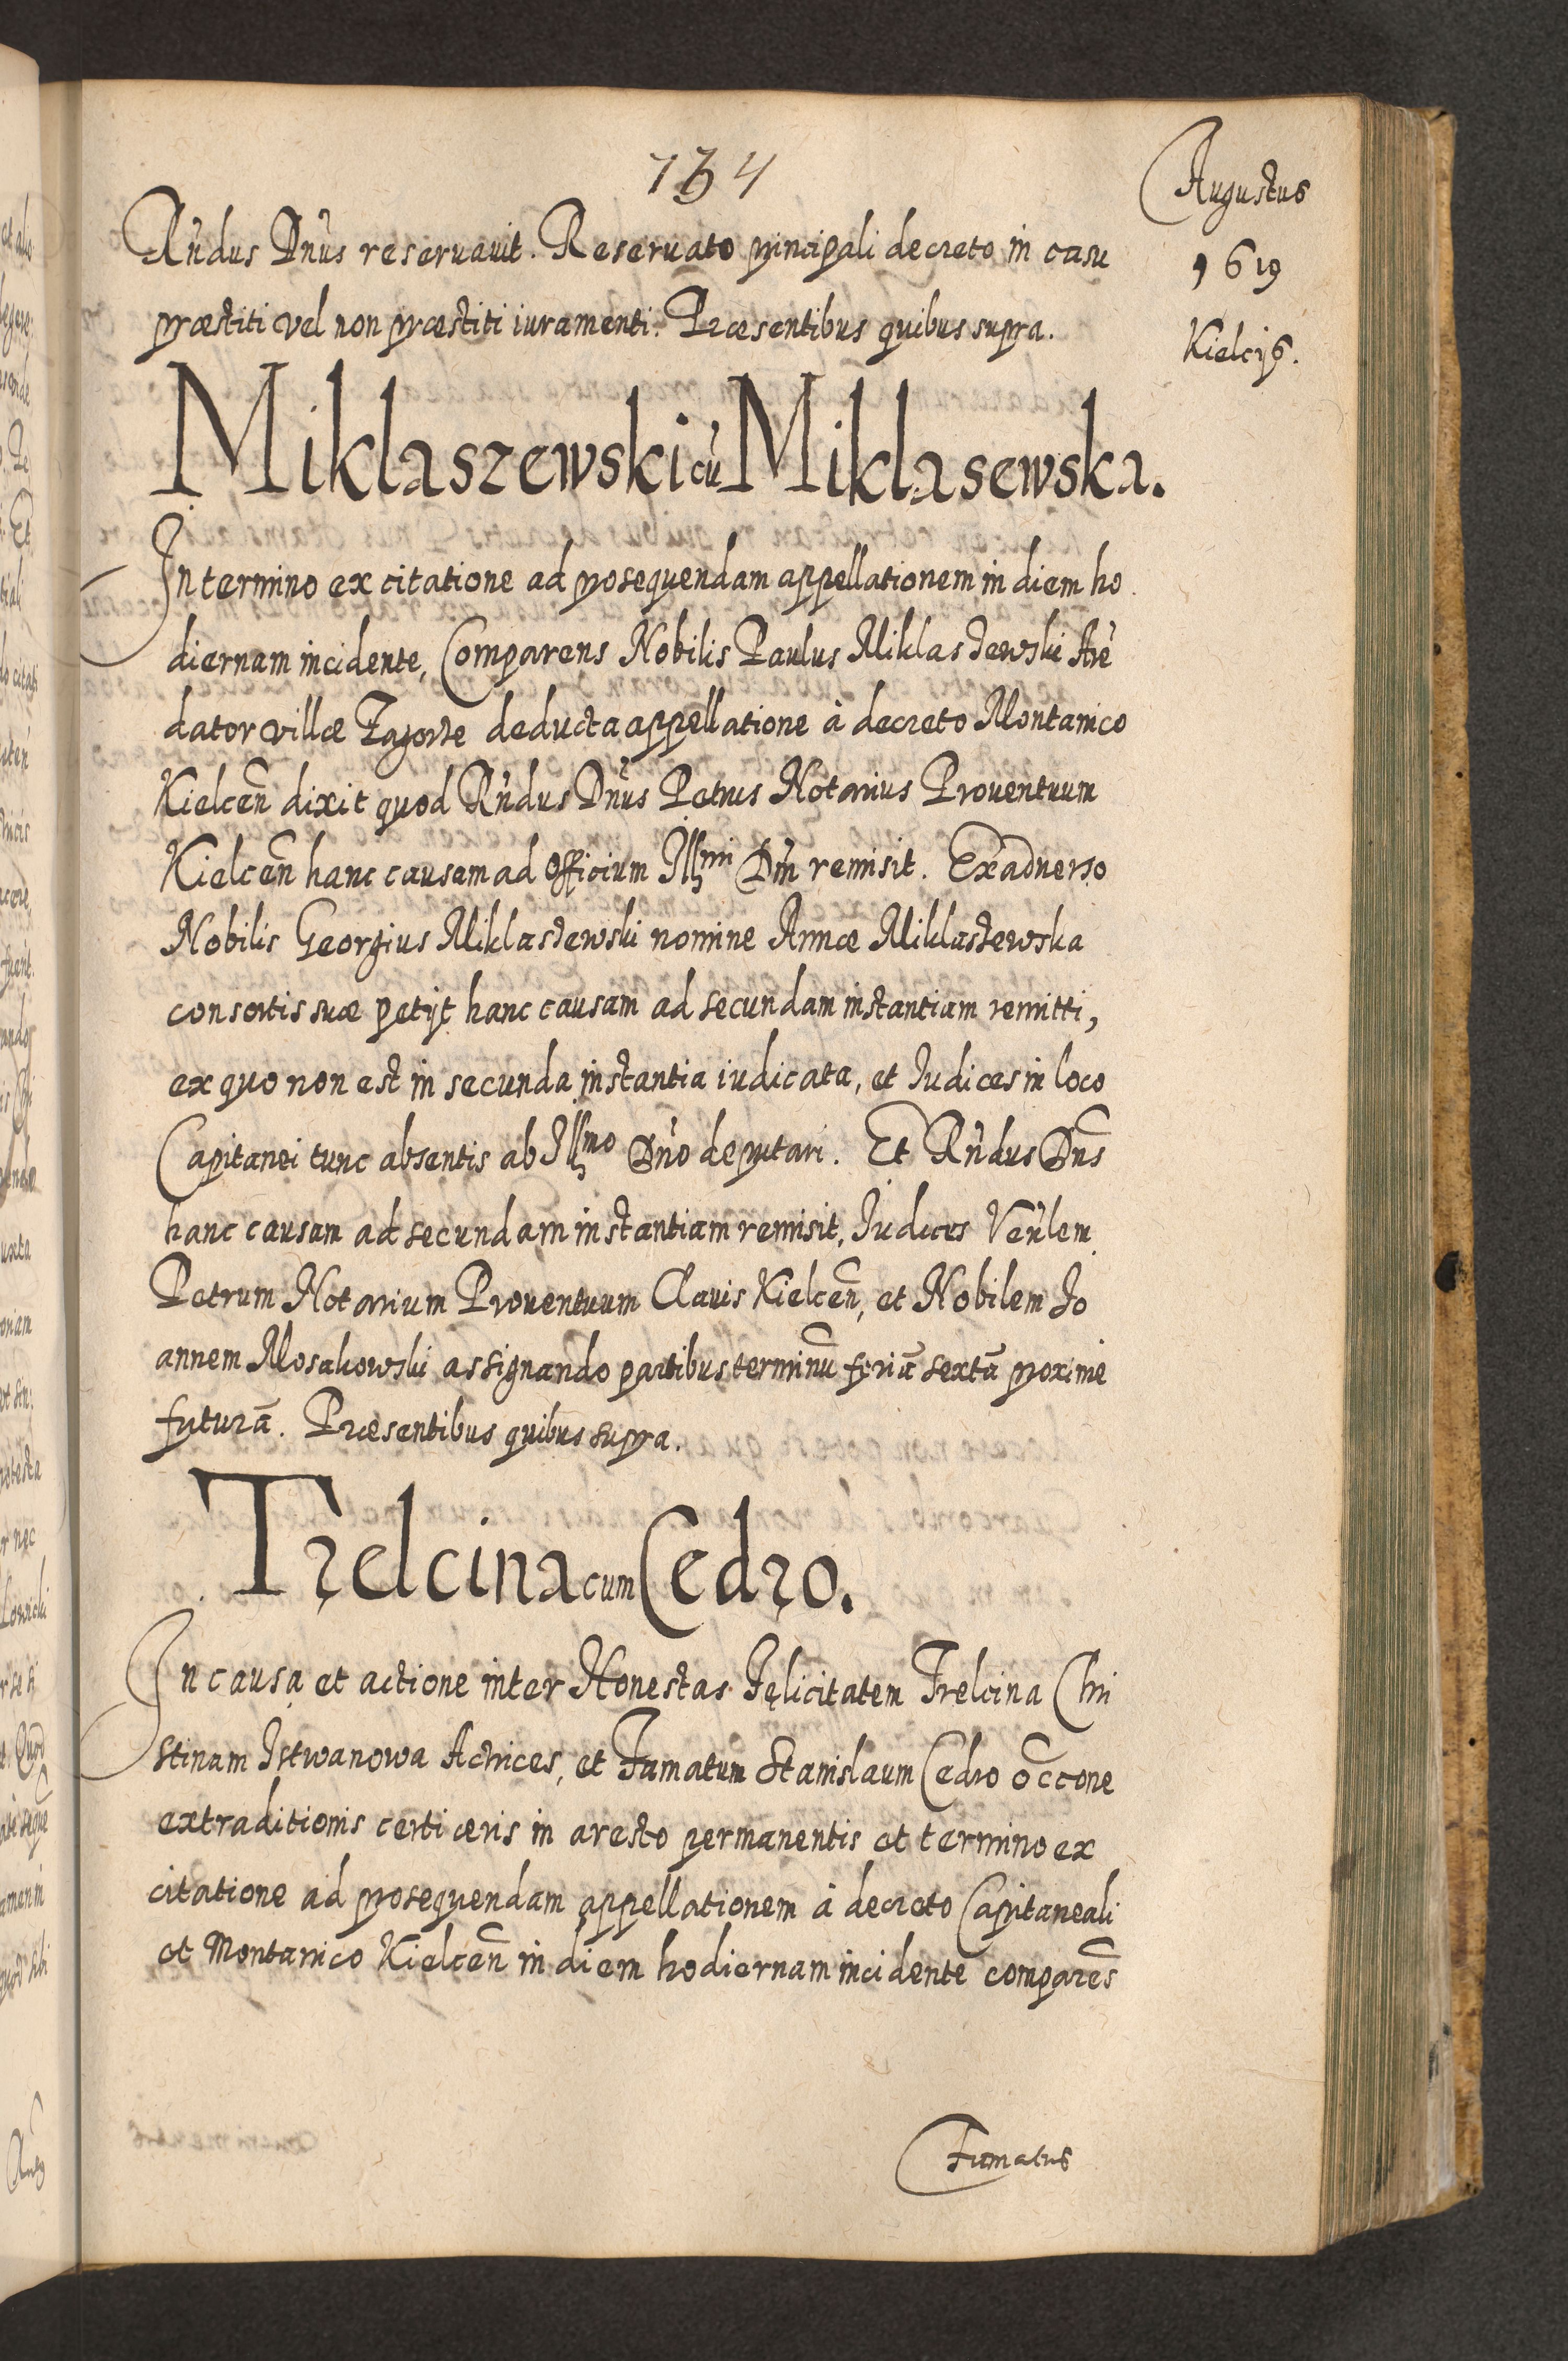 134
Augustus
1619
Kielcijs.
Rndus Dnus reseruauit. Reseruato principali decreto in casu
præstiti vel non præstiti iuramenti. Præsentibus quibus supra.
Miklaszewski cu Miklasewska.
In termino ex citatione ad prosequendam appellationem in diem ho
diernam incidente, Comparens Nobilis Paulus Miklaszewski Are
dator villæ Zagorze deducta appellatione à decreto Montanico
Kielcen dixit quod Rndus Dnus Petrus Notarius Prouentuum
Kielcen hanc causam ad officium Illmi Dni remisit. Ex aduerso
Nobilis Georgius Miklaszewski nomine Annæ Miklaszewska
consortis suæ petijt hanc causam ad secundam instantiam remitti,
ex quo non est in secunda instantia iudicata, et Iudices in loco
Capitanei tunc absentis ab Illmo Dno deputari. Et Rndus Dns
hanc causam ad secundam instantiam remisit, Iudices Venlem
Petrum Notarium Prouentuum Clauis Kielcen, et Nobilem Jo
annem Mosakowski assignando partibus terminu feria sexta proxime
futura. Præsentibus quibus supra.
Trelcina cum Cedro.
In causa et actione inter Honestas Felicitatem Trelcina Chri
stinam Istwanowa Actrices, et Famatum Stanislaum Cedro occone
extraditionis certi æris in aresto permanentis et termino ex
citatione ad prosequendam appellationem à decreto Capitaneali
et Montanico Kielcen in diem hodiernam incidente compares
Famatus